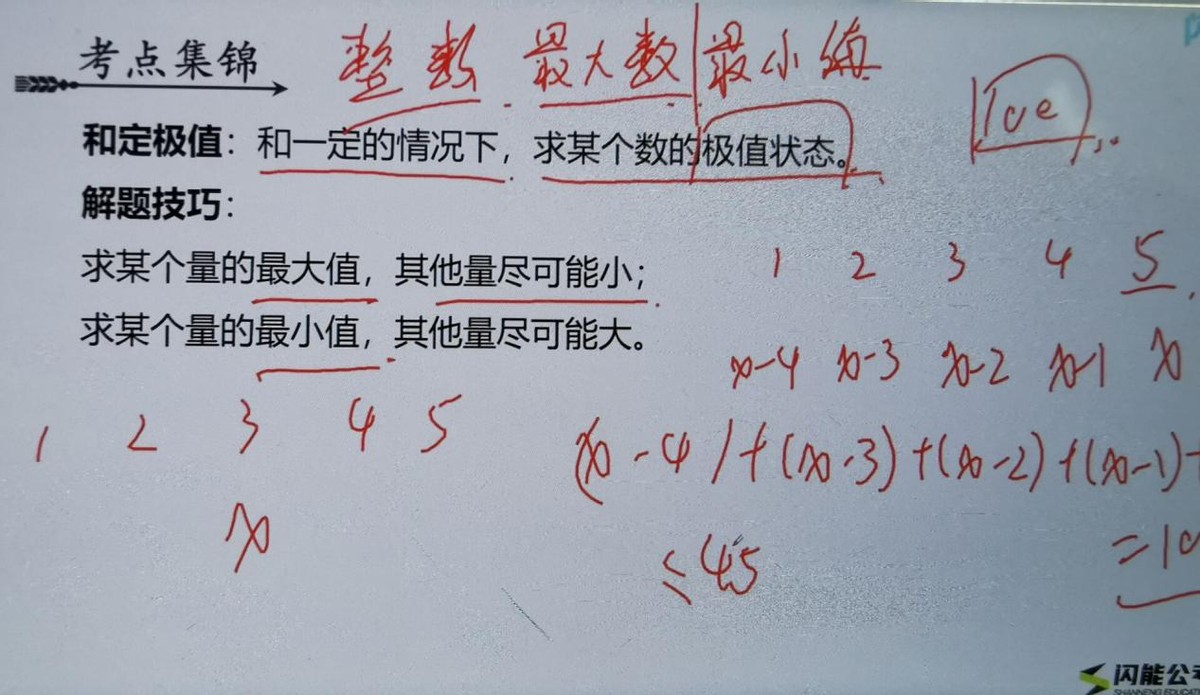 考点集锦 整数 最大数 最小
和定极值：和一定的情况下，求某个数的极值状态。
解题技巧：
求某个量的最大值，其他量尽可能小；
求某个量的最小值，其他量尽可能大。
1 2 3 4 5
x-4 x-3 x-2 x-1 x
1 2 3 4 5
(x-4)+(x-3)+(x-2)+(x-1)+
x
≤45
=10
闪能公
SHANNENG EDU